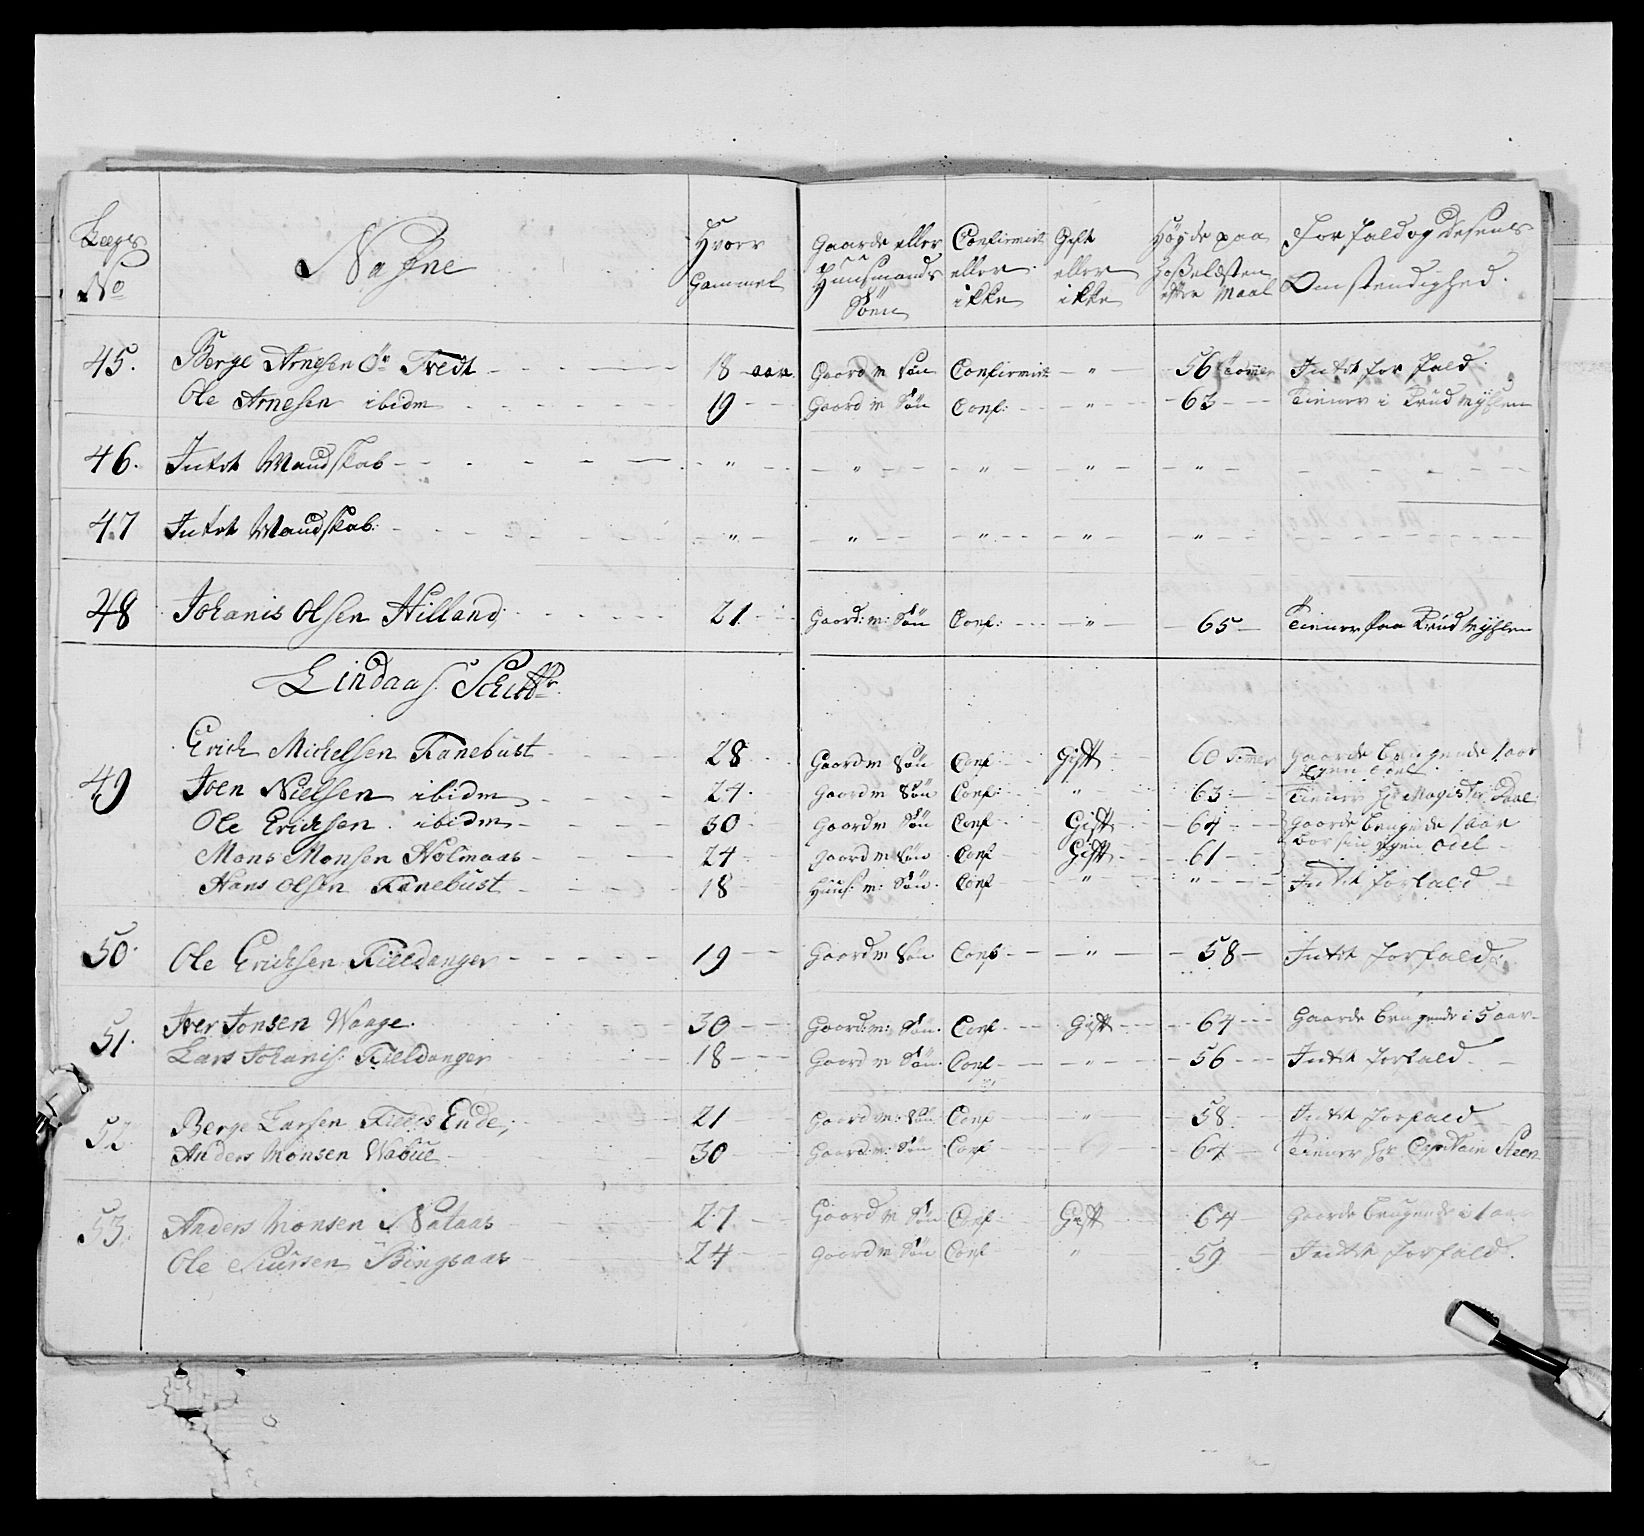 Lægs No | Nafne | Hvorr Gammel | Gaarde eller Huusmands Sönn | Confirmirt eller ikke | Gift eller ikke | Höyde paa Hoßelæsten efter Maal | Forfald og desens Omstendighed.
45. Berge Arnesen Tvedt 18 aar Gaardm Sön Confirmirt " 56 Tomer Intet forfald
Ole Arnesen ibidm 19 Gaard m Sön Conf: " 63 Tiener i
46. Intet Mandskab " " " " "
47 Intet Mandskab " " " " "
48 Johanis Olsen Hilland 21 Gaard: m: Sön Conf: " 65 Tiener paa
Lindaas
49 Erich Michelsen Fanebust 28 Gaardm Sön Conf: Gift 60 Tomer Gaarde brugende 1 aar
egen odel
Iven Nielsen ibidm 24 Gaardm Sön Conf: " 63 Tiener Hr Magister Daal
Ole Erichsen ibidm 30 Gaardm Sön Conf Gift 64 Gaarde brugende 1 aar
Mons Monsen Holmaas 24 gaardm Sön Conf Gift 61 egen odel
Hans Olsen Fanebust 18 Huus: m: Sön Conf " " Intet forfald
50. Ole Erichsen Fielldanger 19 Gaardm Sön Conf " 58 Intet forfald
51. Iver Jonsen Waage 30 Gaard: m: Sön Conf Gift 64 Gaarde brugende i 5 aar
Lars Johanis: Fielldanger 18 Gaard m Sön Conf " 56 Intet forfald
52 Berge Larsen Ende 21 Gaard m: Sön Conf " 58 Intet forfald
Anders Monsen 30 Gaard: m: Sön Conf 64 Tiener Hr Capitain Steen
53. Anders Monsen Nataas 27 Gaard m Sön Conf: Gift 64 Gaarde brugende i 1 aar
Ole 24 gaard m Sön Conf " 59 Intet forfald.